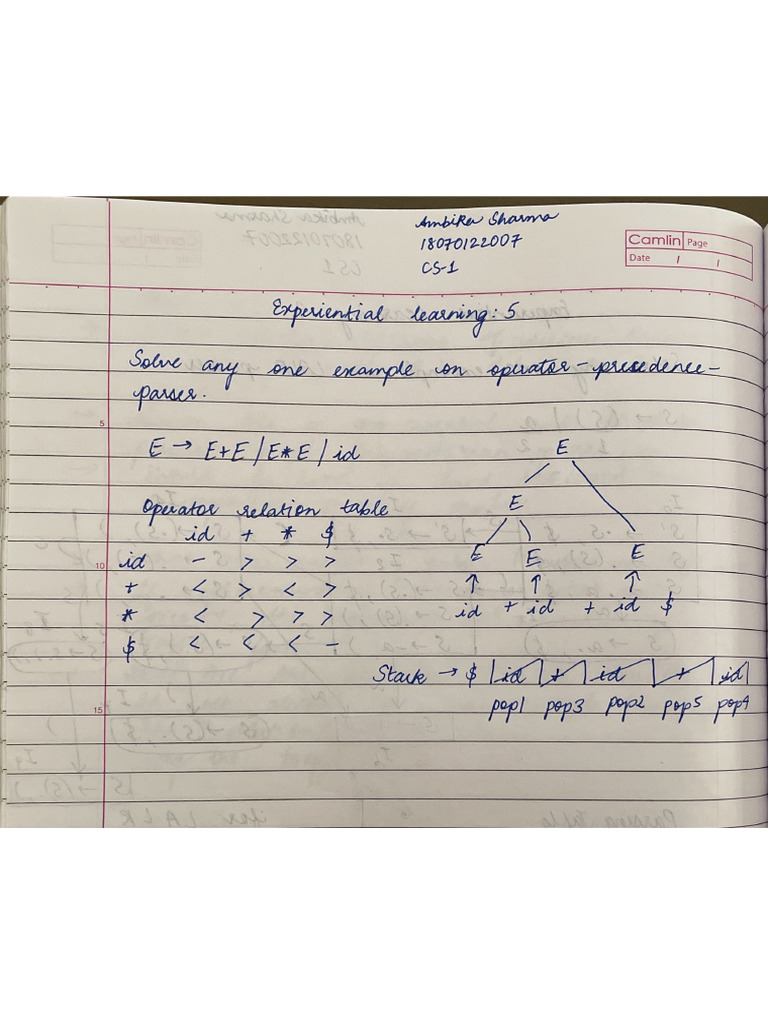 Ambika Sharma
18070122007
CS-1
Camlin Page
Date / /
Experiential learning: 5
Solve any one example on operator-precedence-
parser.
5
E → E+E / E*E / id
E
Operator relation table
E
id + * $
10
id - > > >
E E E
+ < > < >
↑ ↑ ↑
* < > > >
id + id + id $
$ < < < -
Stack → $ | id | + | id | + | id |
pop1 pop3 pop2 pop5 pop4
15